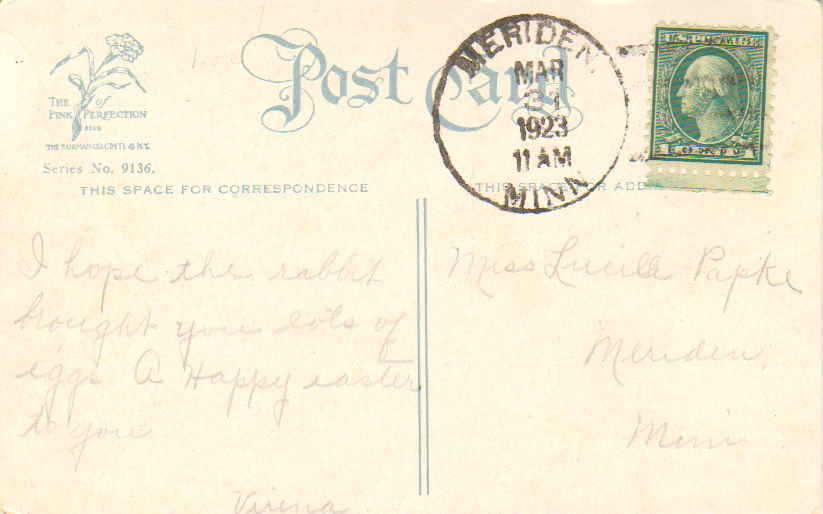 Post Card
THE of
PINK PERFECTION
THE FAIRMAN CO. CINTI. & N.Y.
Series No. 9136.
THIS SPACE FOR CORRESPONDENCE
THIS SPACE FOR ADD
MERIDEN
MAR
1923
11 AM
MINN
U.S. POSTAGE
I hope the rabbit
brought you lots of
eggs A Happy easter
to you
Virena
Miss Lucille Papke
Meriden,
Minn